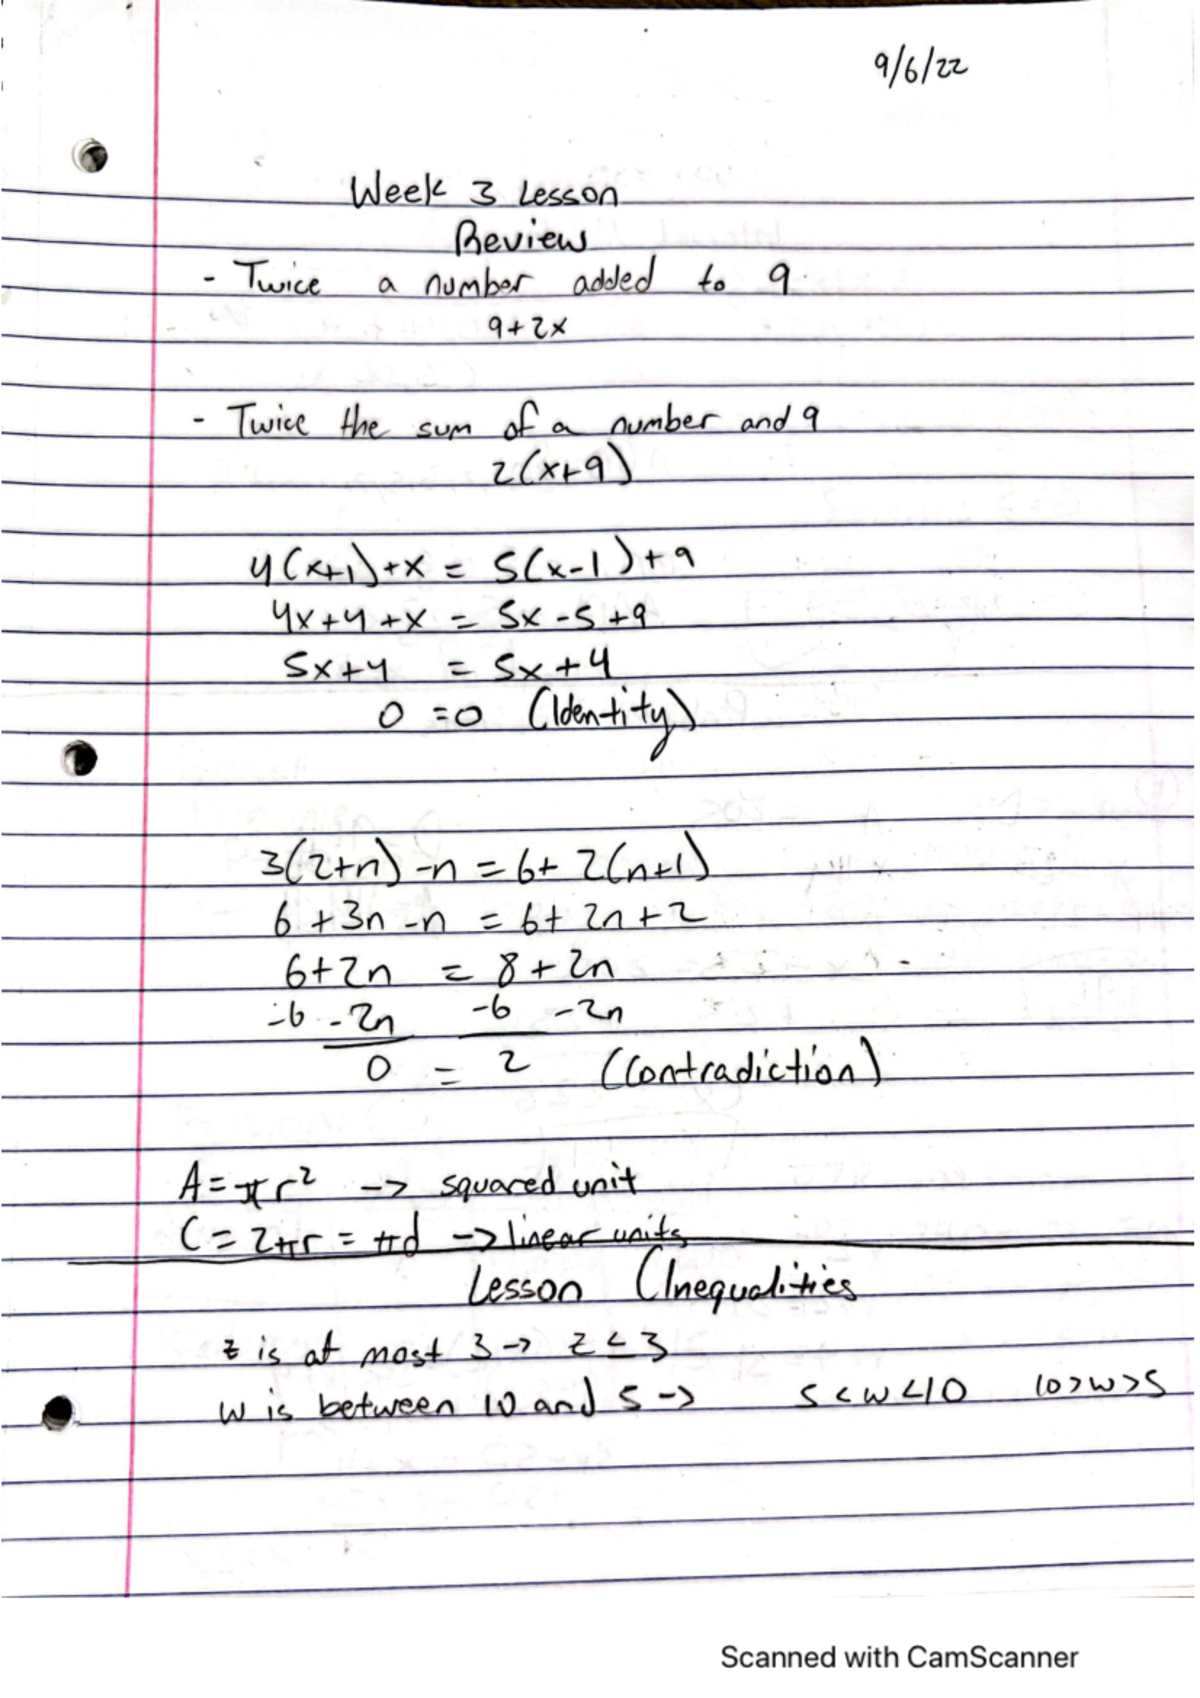 9/6/22
Week 3 Lesson
Review
- Twice a number added to 9
9+2x
- Twice the sum of a number and 9
2(x+9)
4(x+1)+x = 5(x-1)+9
4x+4+x = 5x-5+9
5x+4 = 5x+4
0=0 (Identity)
3(2+n)-n = 6+2(n+1)
6+3n-n = 6+2n+2
6+2n = 8+2n
-6 -2n -6 -2n
0 = 2 (Contradiction)
A=πr² -> squared unit
C=2πr = πd -> linear units
Lesson (Inequalities
z is at most 3 -> z ≤ 3
w is between 10 and 5 -> 5<w<10 10>w>5
Scanned with CamScanner